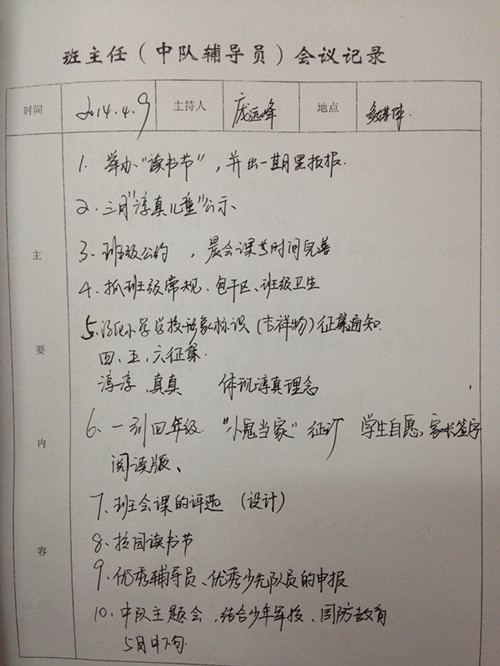 班主任（中队辅导员）会议记录
时间 2014.4.9 主持人 庞远峰 地点 多媒体
主要内容
1. 举办“读书节”，并出一期黑板报.
2. 三月“淳真儿童”公示
3. 班级公约，晨会课与时间完善
4. 抓班级常规、包干区、班级卫生
5. 小学学校 标识（吉祥物）征集通知
四、五、六征集.
淳淳、真真 体现淳真理念
6. 一到四年级 “小鬼当家”征订 学生自愿、家长签字
阅读版、
7. 班会课的评选（设计）
8. 校园读书节
9. 优秀辅导员、优秀少先队员的申报
10. 中队主题会，结合少年军校、国防教育
5月中下旬